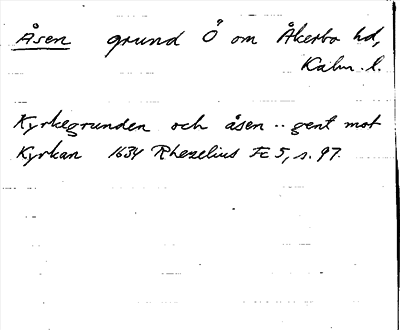 Åsen grund Ö om Åkerbo hd,
Kalm. l.
Kyrkegrunden och åsen .. gent mot
Kyrkan 1634 Rhezelius Fc 5, s. 97.